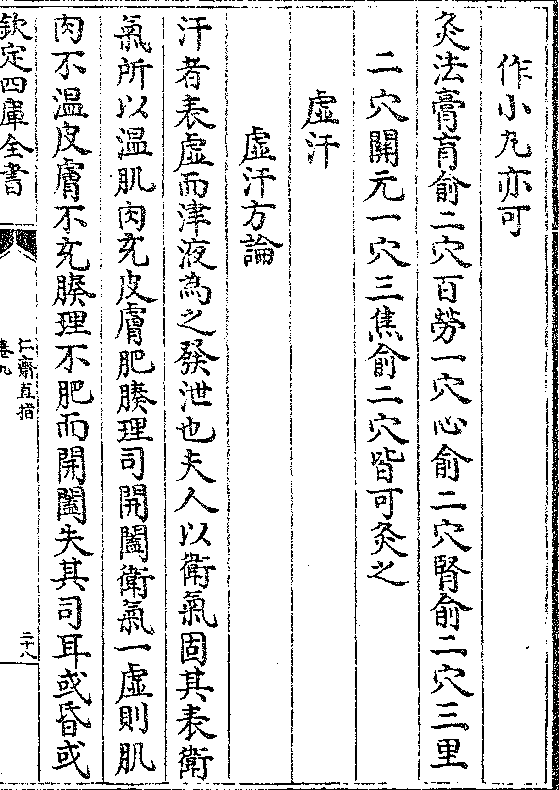 作小丸亦可
灸法膏肓俞二穴百勞一穴心俞二穴腎俞二穴三里
二穴關元一穴三焦俞二穴皆可灸之
虛汗
虛汗方論
汗者表虛而津液為之發泄也夫人以衛氣固其表衛
氣所以温肌肉充皮膚肥腠理司開闔衛氣一虛則肌
肉不温皮膚不充腠理不肥而開闔失其司耳或昏或
欽定四庫全書
仁齋直指
卷九
二十八